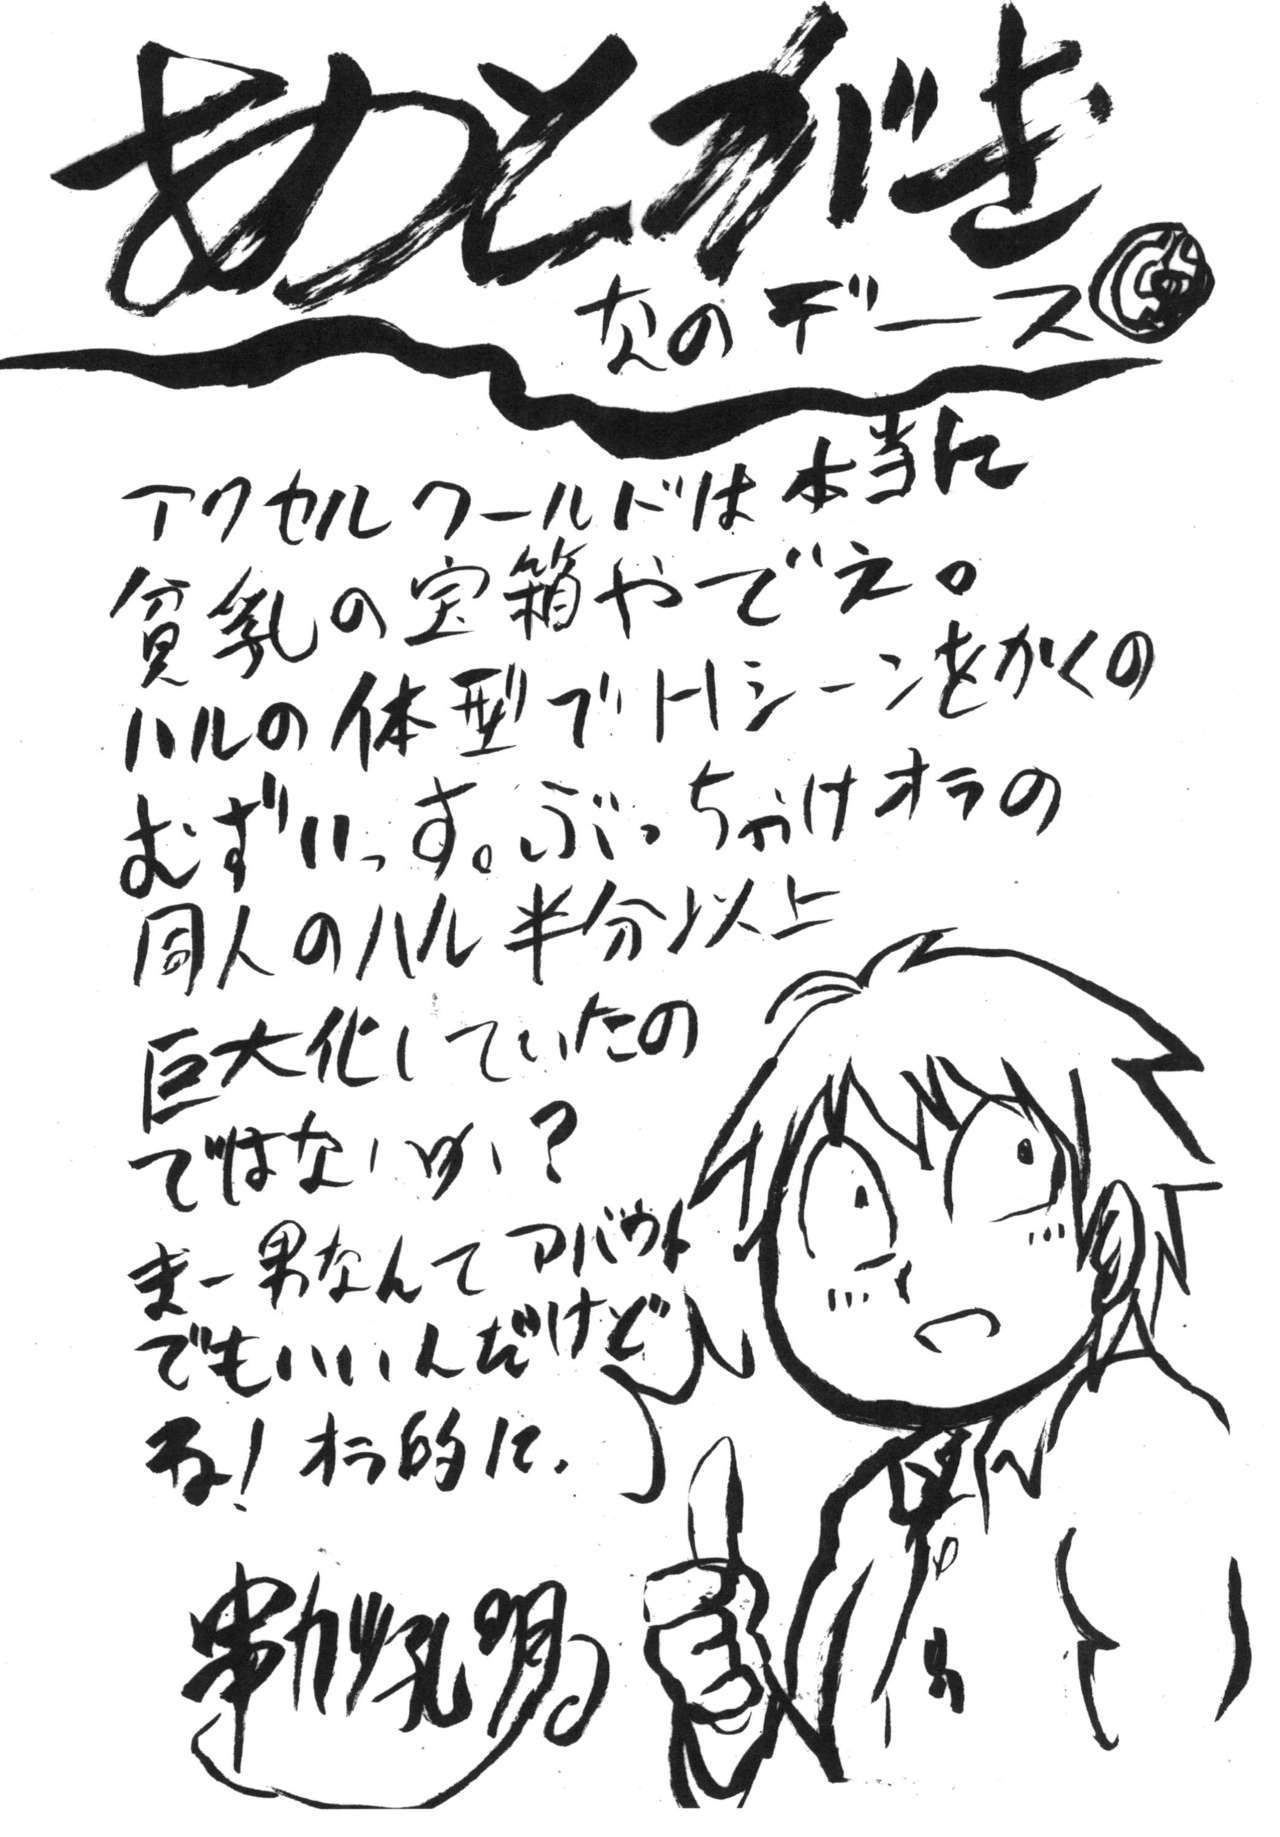 あとがき
なのデース
アクセルワールドは本当に
貧乳の宝箱やでぇ。
ハルの体型でHシーンをかくの
むずいっす。ぶっちゃけオラの
同人のハル半分以上
巨大化していたの
ではないかい？
まー男なんてアバウト
でもいいんだけど
ね！オラ的に.
串カツ孔明